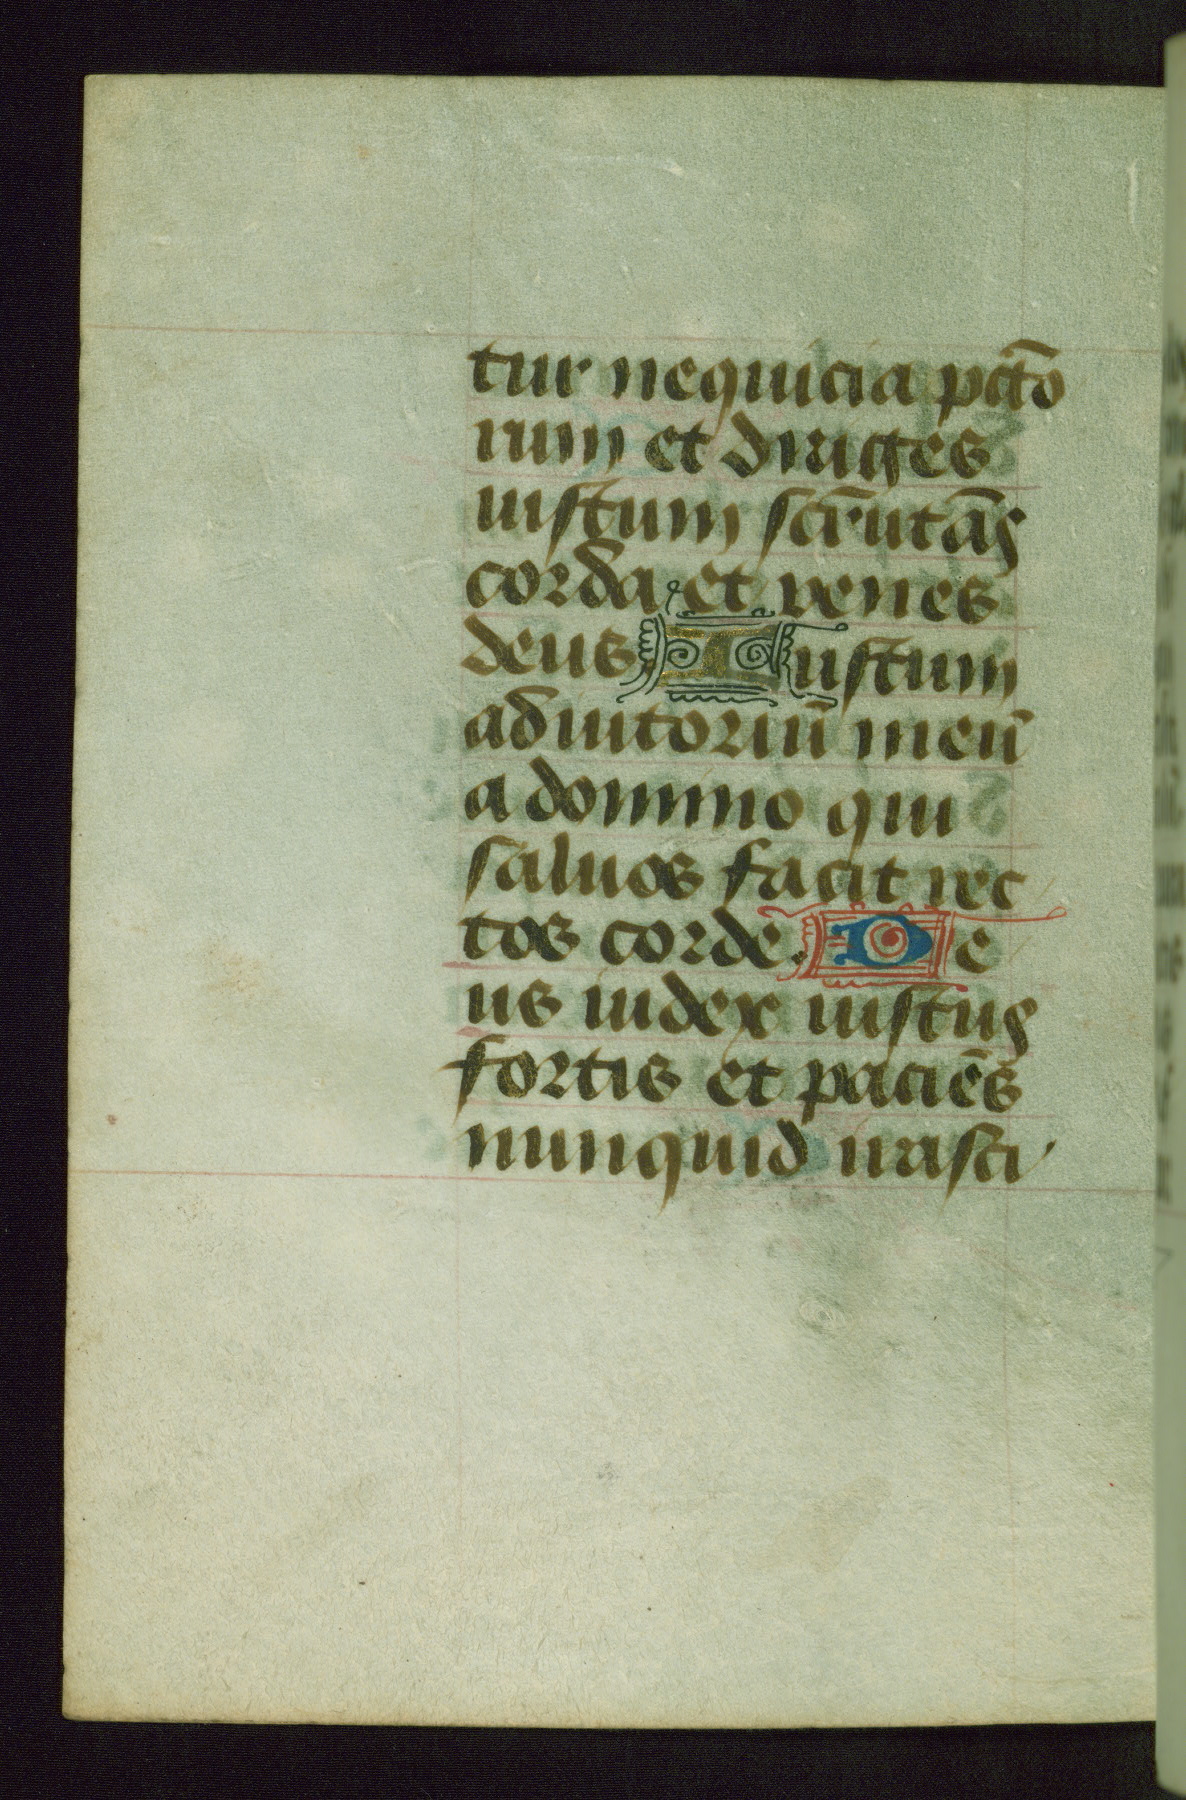 tur nequicia pctō
rum et diriges
iustum scrutās
corda et renes
deus Iustum
adiutoriū meū
a domino qui
saluos facit rec
tos corde. De
us iudex iustus
fortis et paciēs
nunquid irasci